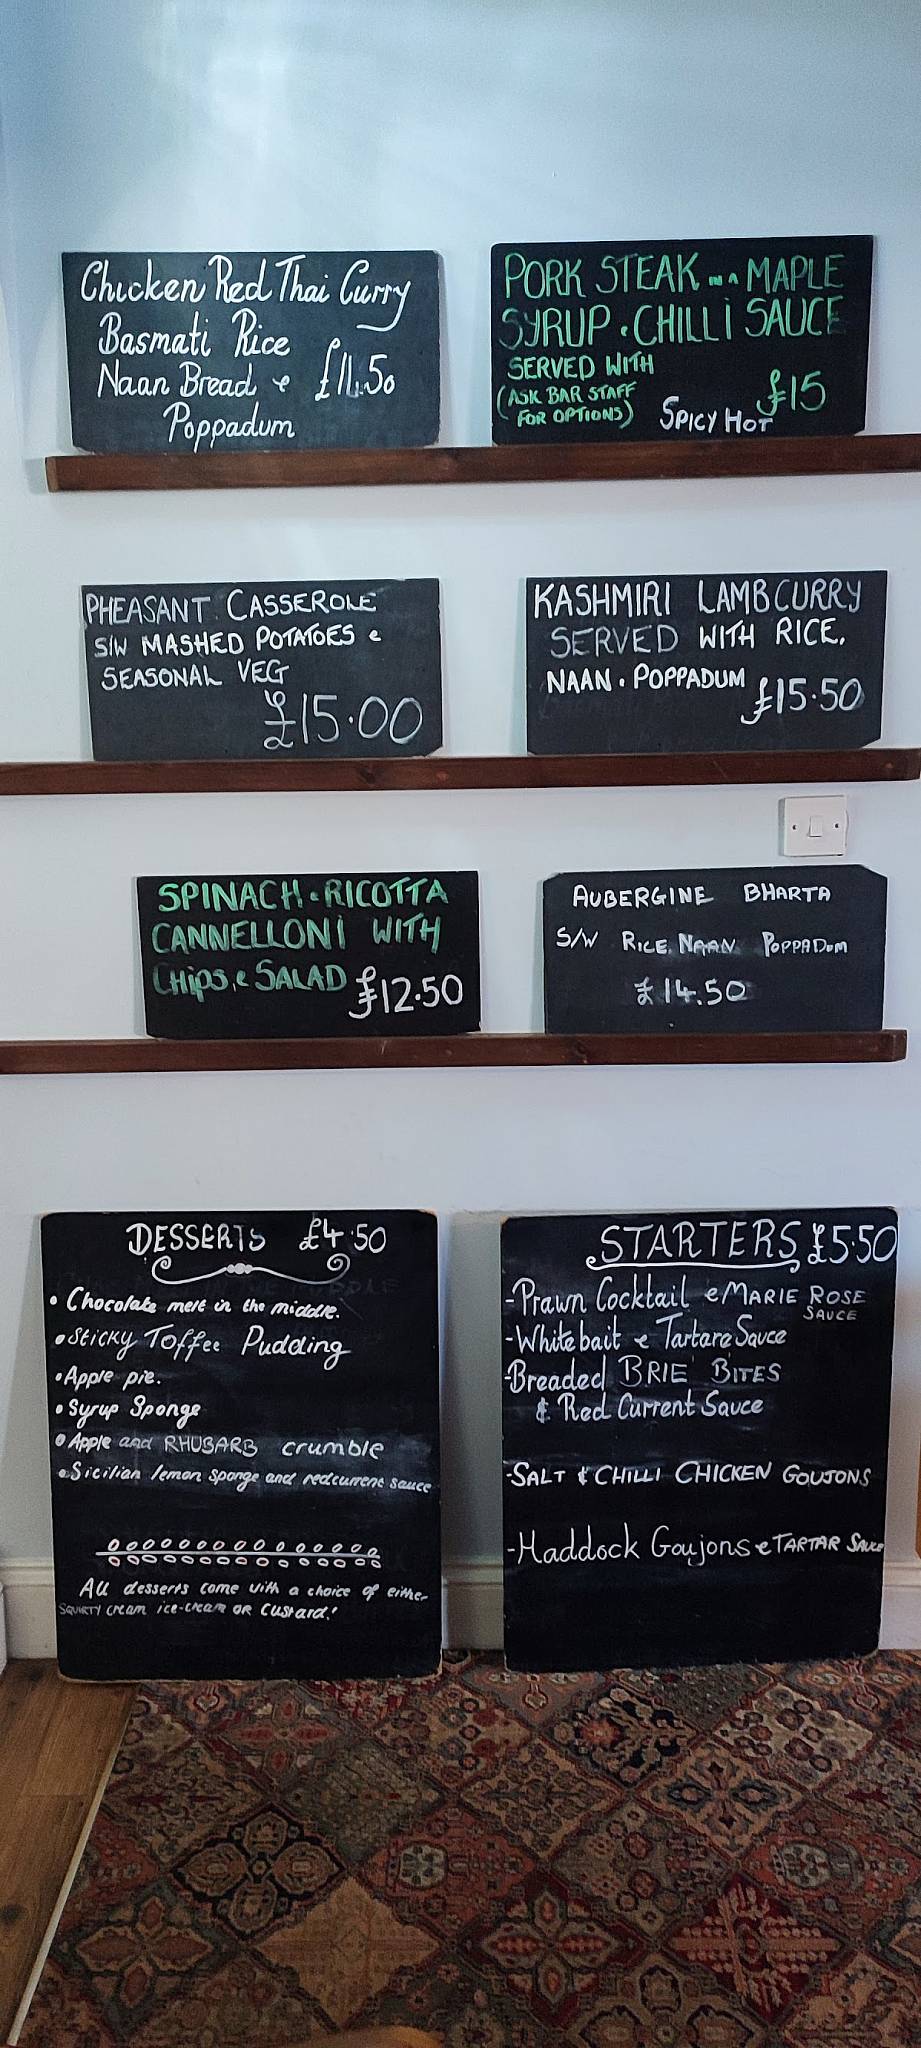 Chicken Red Thai Curry
Basmati Rice
Naan Bread e £11.50
Poppadum
PORK STEAK IN A MAPLE
SYRUP • CHILLI SAUCE
SERVED WITH
(ASK BAR STAFF
FOR OPTIONS)
£15
SPICY HOT
PHEASANT CASSEROLE
S/W MASHED POTATOES e
SEASONAL VEG
£15.00
KASHMIRI LAMB CURRY
SERVED WITH RICE,
NAAN • POPPADUM
£15.50
SPINACH • RICOTTA
CANNELLONI WITH
CHIPS, e SALAD £12.50
AUBERGINE BHARTA
S/W RICE NAAN POPPADUM
£14.50
DESSERTS £4.50
• Chocolate melt in the middle.
• Sticky Toffee Pudding
• Apple pie.
• Syrup Sponge
• Apple and RHUBARB crumble
• Sicilian lemon sponge and redcurrent sauce
All desserts come with a choice of either
SQUIRTY cream ice-cream OR Custard!
STARTERS £5.50
-Prawn Cocktail e MARIE ROSE
SAUCE
-Whitebait e Tartare Sauce
-Breaded BRIE BITES
& Red Current Sauce
-SALT & CHILLI CHICKEN GOUJONS
-Haddock Goujons e TARTAR SAUCE